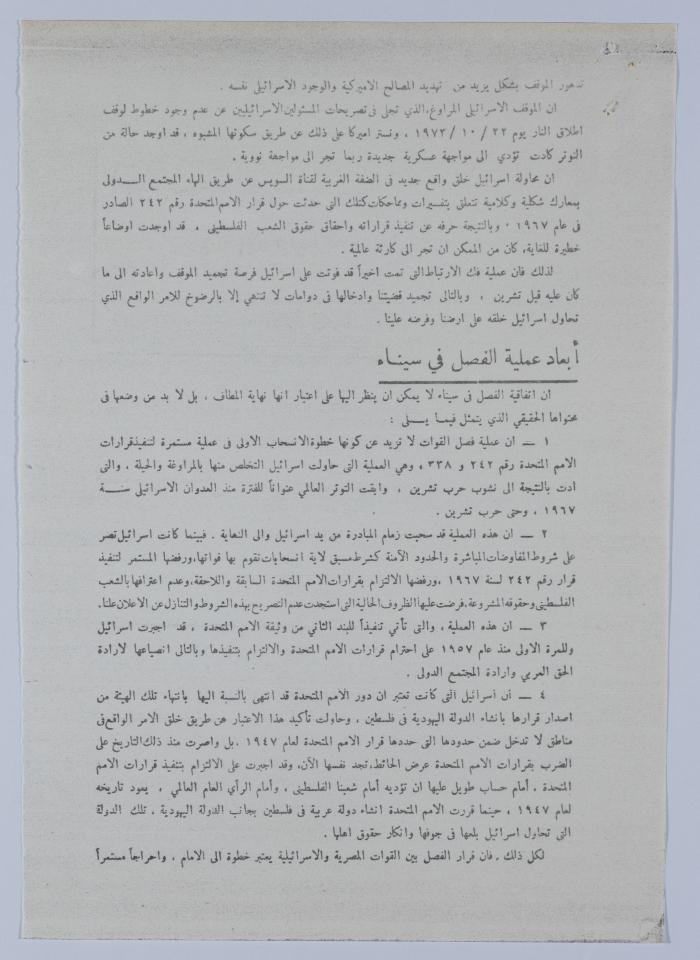 تدهور الموقف بشكل يزيد من تهديد المصالح الاميركية والوجود الاسرائيلى نفسه .
ان الموقف الاسرائيلى المراوغ، الذي تجلى فى تصريحات المسئولين الاسرائيليين عن عدم وجود خطوط لوقف
اطلاق النار يوم ٢٢ / ١٠ / ١٩٧٣ ، وتستر اميركا على ذلك عن طريق سكوتها المشبوه ، قد اوجد حالة من
التوتر كادت تؤدي الى مواجهة عسكرية جديدة ربما تجر الى مواجهة نووية .
ان محاولة اسرائيل خلق واقع جديد فى الضفة الغربية لقناة السويس عن طريق الهاء المجتمع الــدولى
بمعارك شكلية وكلامية تتعلق بتفسيرات ومماحكات كتلك التى حدثت حول قرار الامم المتحدة رقم ٢٤٢ الصادر
فى عام ١٩٦٧ ، وبالنتيجة حرفه عن تنفيذ قراراته واحقاق حقوق الشعب الفلسطينى ، قد اوجدت اوضاعاً
خطيرة للغاية، كان من الممكن ان تجر الى كارثة عالمية .
لذلك فان عملية فك الارتباط التى تمت اخيراً قد فوتت على اسرائيل فرصة تجميد الموقف واعادته الى ما
كان عليه قبل تشرين ، وبالتالى تجميد قضيتنا وادخالها فى دوامات لا تنتهي إلا بالرضوخ للامر الواقع الذي
تحاول اسرائيل خلقه على ارضنا وفرضه علينا .
أبعاد عملية الفصل في سيناء
ان اتفاقية الفصل فى سيناء لا يمكن ان ينظر اليها على اعتبار انها نهاية المطاف ، بل لا بد من وضعها فى
محتواها الحقيقي الذي يتمثل فيما يــلى :
١ ــ ان عملية فصل القوات لا تزيد عن كونها خطوة الانسحاب الاولى فى عملية مستمرة لتنفيذ قرارات
الامم المتحدة رقم ٢٤٢ و ٣٣٨ ، وهي العملية التى حاولت اسرائيل التخلص منها بالمراوغة والحيلة ، والتى
ادت بالنتيجة الى نشوب حرب تشرين ، وابقت التوتر العالمي عنواناً للفترة منذ العدوان الاسرائيلى سنــة
١٩٦٧ ، وحتى حرب تشرين .
٢ ــ ان هذه العملية قد سحبت زمام المبادرة من يد اسرائيل والى النهاية . فبينما كانت اسرائيل تصر
على شروط المفاوضات المباشرة والحدود الآمنة كشرط مسبق لاية انسحابات تقوم بها قواتها، ورفضها المستمر لتنفيذ
قرار رقم ٢٤٢ لسنة ١٩٦٧ ،ورفضها الالتزام بقرارات الامم المتحدة السابقة واللاحقة،وعدم اعترافها بالشعب
الفلسطينى وحقوقه المشروعة، فرضت عليها الظروف الحالية التى استجدت عدم التصريح بهذه الشروط والتنازل عن الاعلان علنا.
٣ ــ ان هذه العملية ، والتى تأتي تنفيذاً للبند الثاني من وثيقة الامم المتحدة ، قد اجبرت اسرائيل
وللمرة الاولى منذ عام ١٩٥٧ على احترام قرارات الامم المتحدة والالتزام بتنفيذها وبالتالى انصياعها لارادة
الحق العربي وارادة المجتمع الدولى .
٤ ــ ان اسرائيل التى كانت تعتبر ان دور الامم المتحدة قد انتهى بالنسبة اليها بانتهاء تلك الهيئة من
اصدار قرارها بانشاء الدولة اليهودية فى فلسطين ، وحاولت تأكيد هذا الاعتبار عن طريق خلق الامر الواقع فى
مناطق لا تدخل ضمن حدودها التى حددها قرار الامم المتحدة لعام ١٩٤٧ ،بل واصرت منذ ذلك التاريخ على
الضرب بقرارات الامم المتحدة عرض الحائط،تجد نفسها الآن، وقد اجبرت على الالتزام بتنفيذ قرارات الامم
المتحدة ، أمام حساب طويل عليها ان تؤديه أمام شعبنا الفلسطينى ، وأمام الرأي العام العالمي ، يعود تاريخه
لعام ١٩٤٧ ، حينما قررت الامم المتحدة انشاء دولة عربية فى فلسطين بجانب الدولة اليهودية ، تلك الدولة
التى تحاول اسرائيل بلعها فى جوفها وانكار حقوق اهلها .
لكل ذلك ، فان قرار الفصل بين القوات المصرية والاسرائيلية يعتبر خطوة الى الامام ، واحراجاً مستمراً